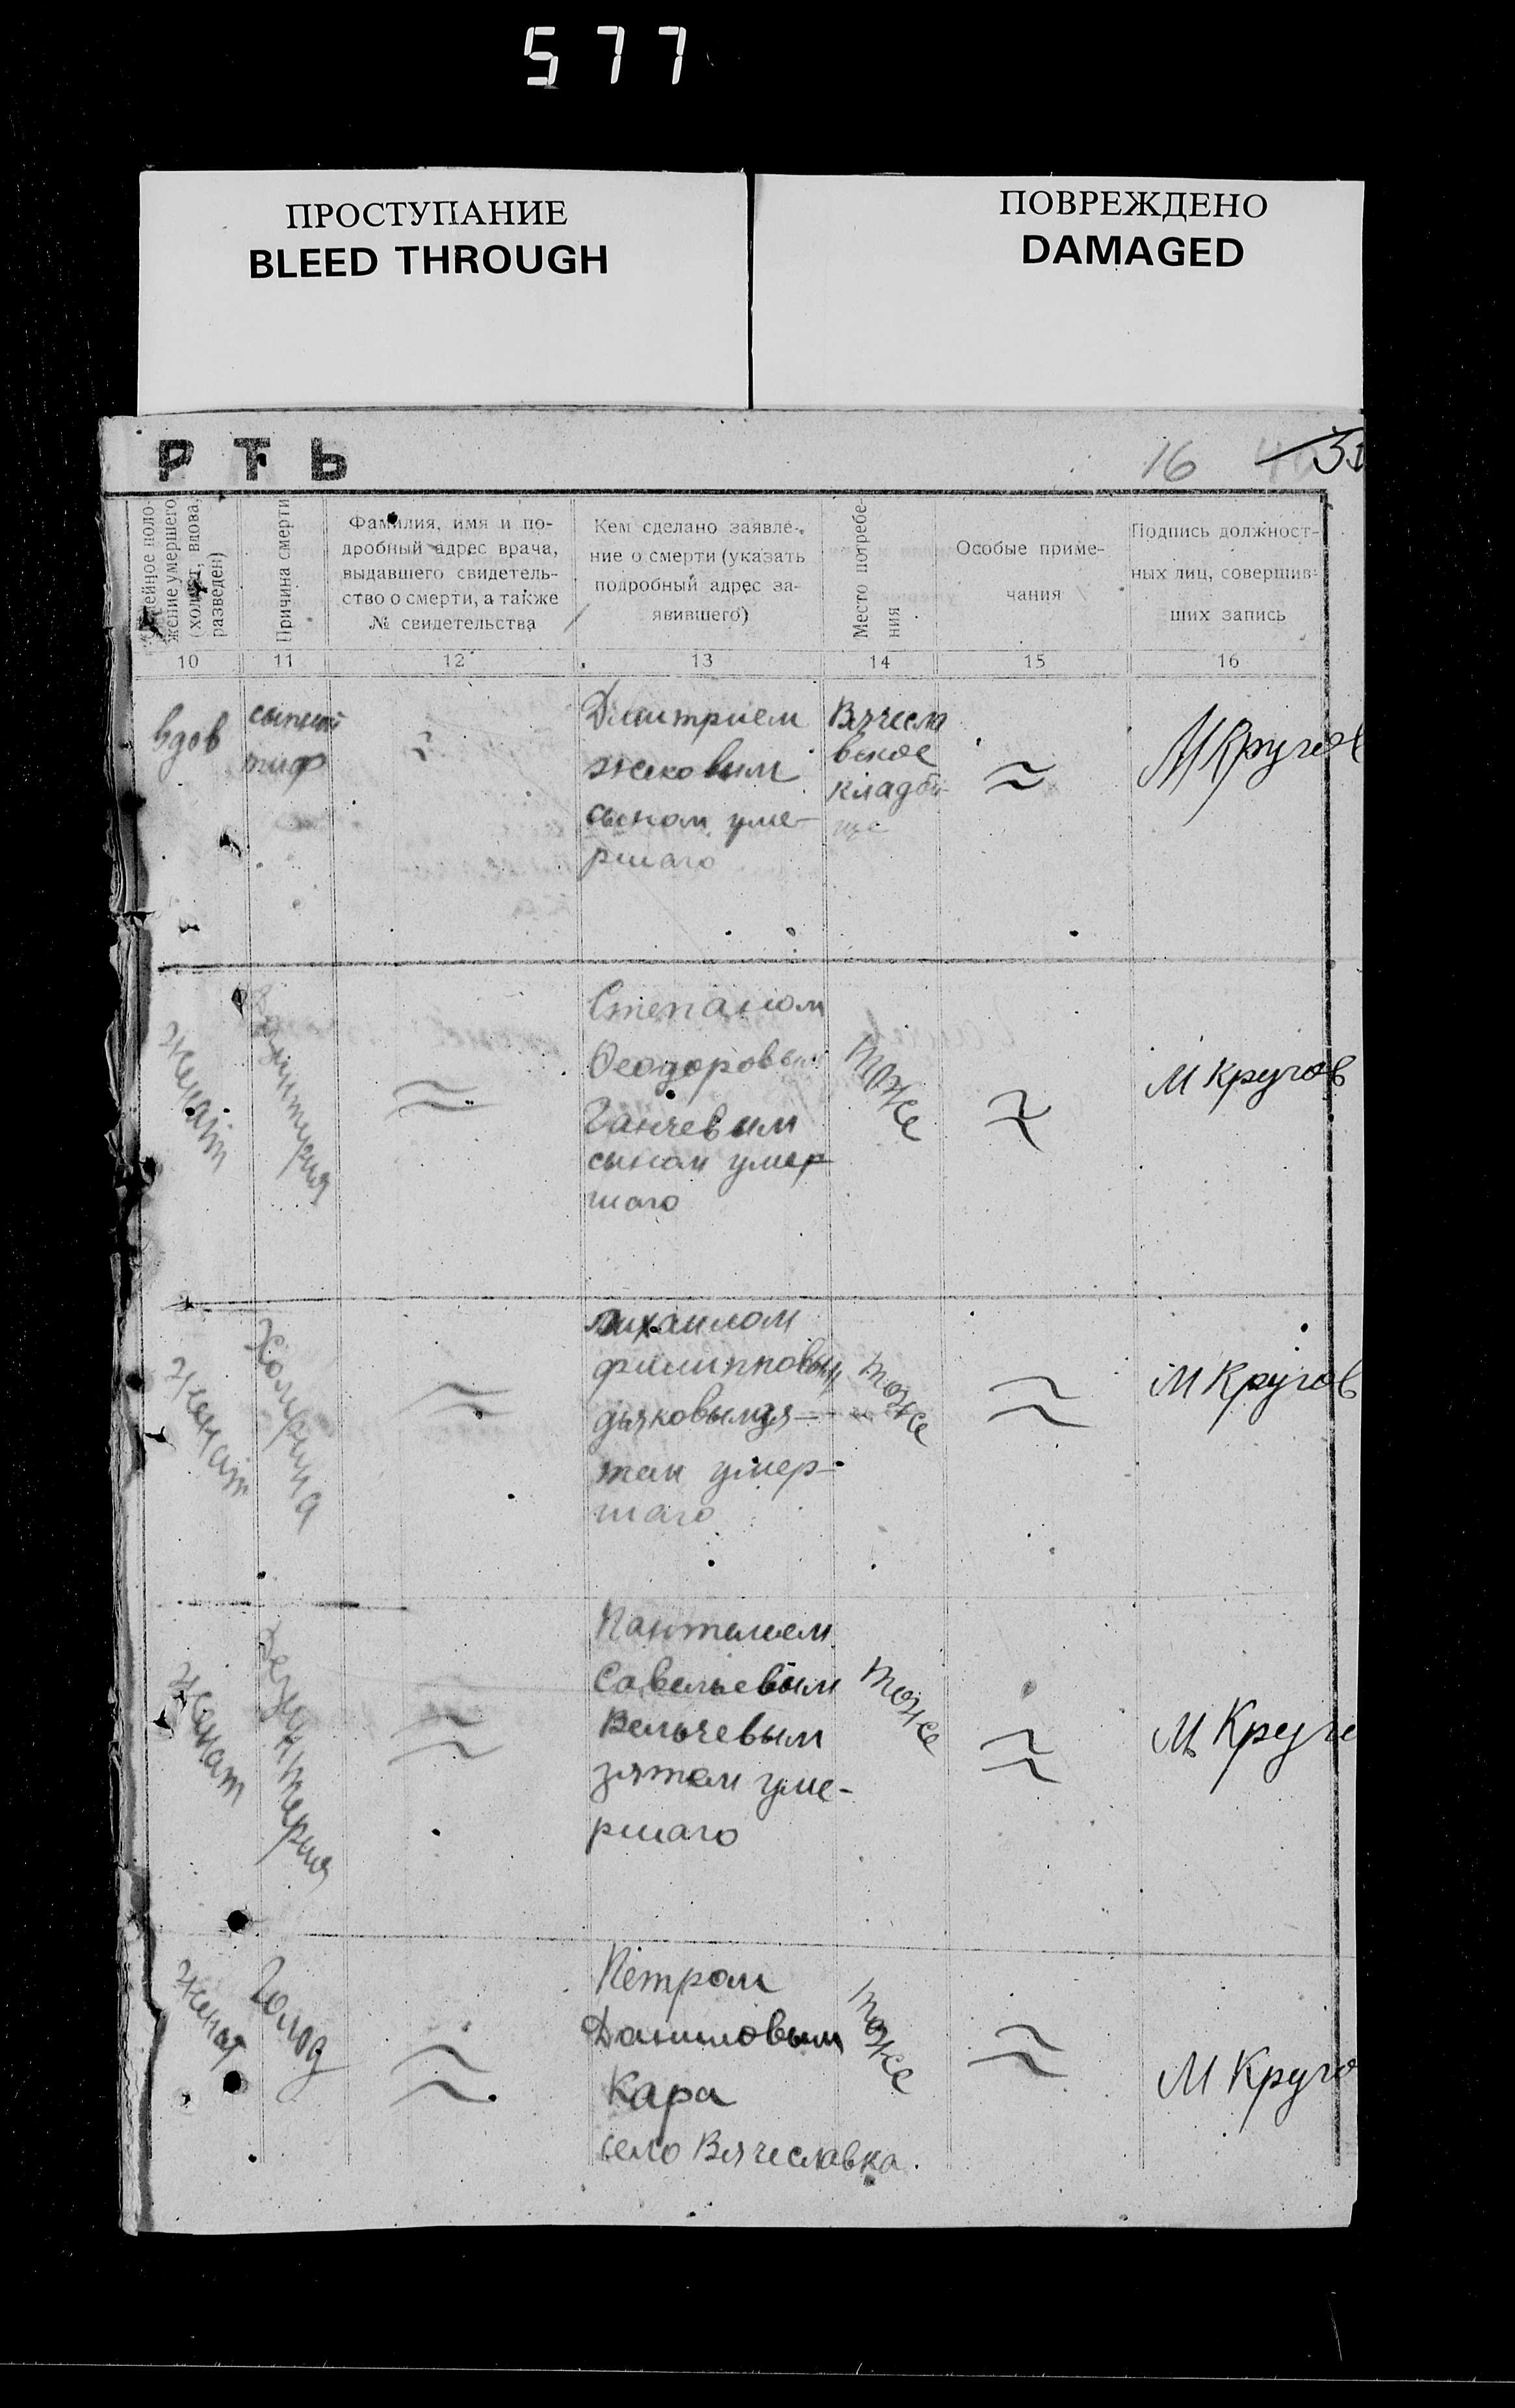 577
ПРОСТУПАНИЕ
BLEED THROUGH
ПОВРЕЖДЕНО
DAMAGED
РТЬ
16
жение умершего
(холост, вдова,
разведен)
Причина смерти
Фамилия, имя и по-
дробный адрес врача,
выдавшего свидетель-
ство о смерти, а также
№ свидетельства
Кем сделано заявле-
ние о смерти (указать
подробный адрес за-
явившего)
Место погребе-
ния
Особые приме-
чания
Подпись должност-
ных лиц, совершив-
ших запись
10
11
12
13
14
15
16
вдов
сыпной
тиф
Дмитрием
сыном уме-
ршаго
Вячесла
вское
кладби
ще
М Кругов
женат
Степаном
Феодоровым
Ганчевым
сыном умер
шаго
тоже
М Кругов
женат
Холерина
михаилом
филипповым
дьяковым зя-
тем умер-
шаго
тоже
М Кругов
женат
дезинтерия
Пантелеем
Савельевым
Вельчевым
зятем уме-
ршаго
тоже
М Круго
женат
Голод
Петром
Даниловым
Кара
село Вячеславка.
тоже
М Круго